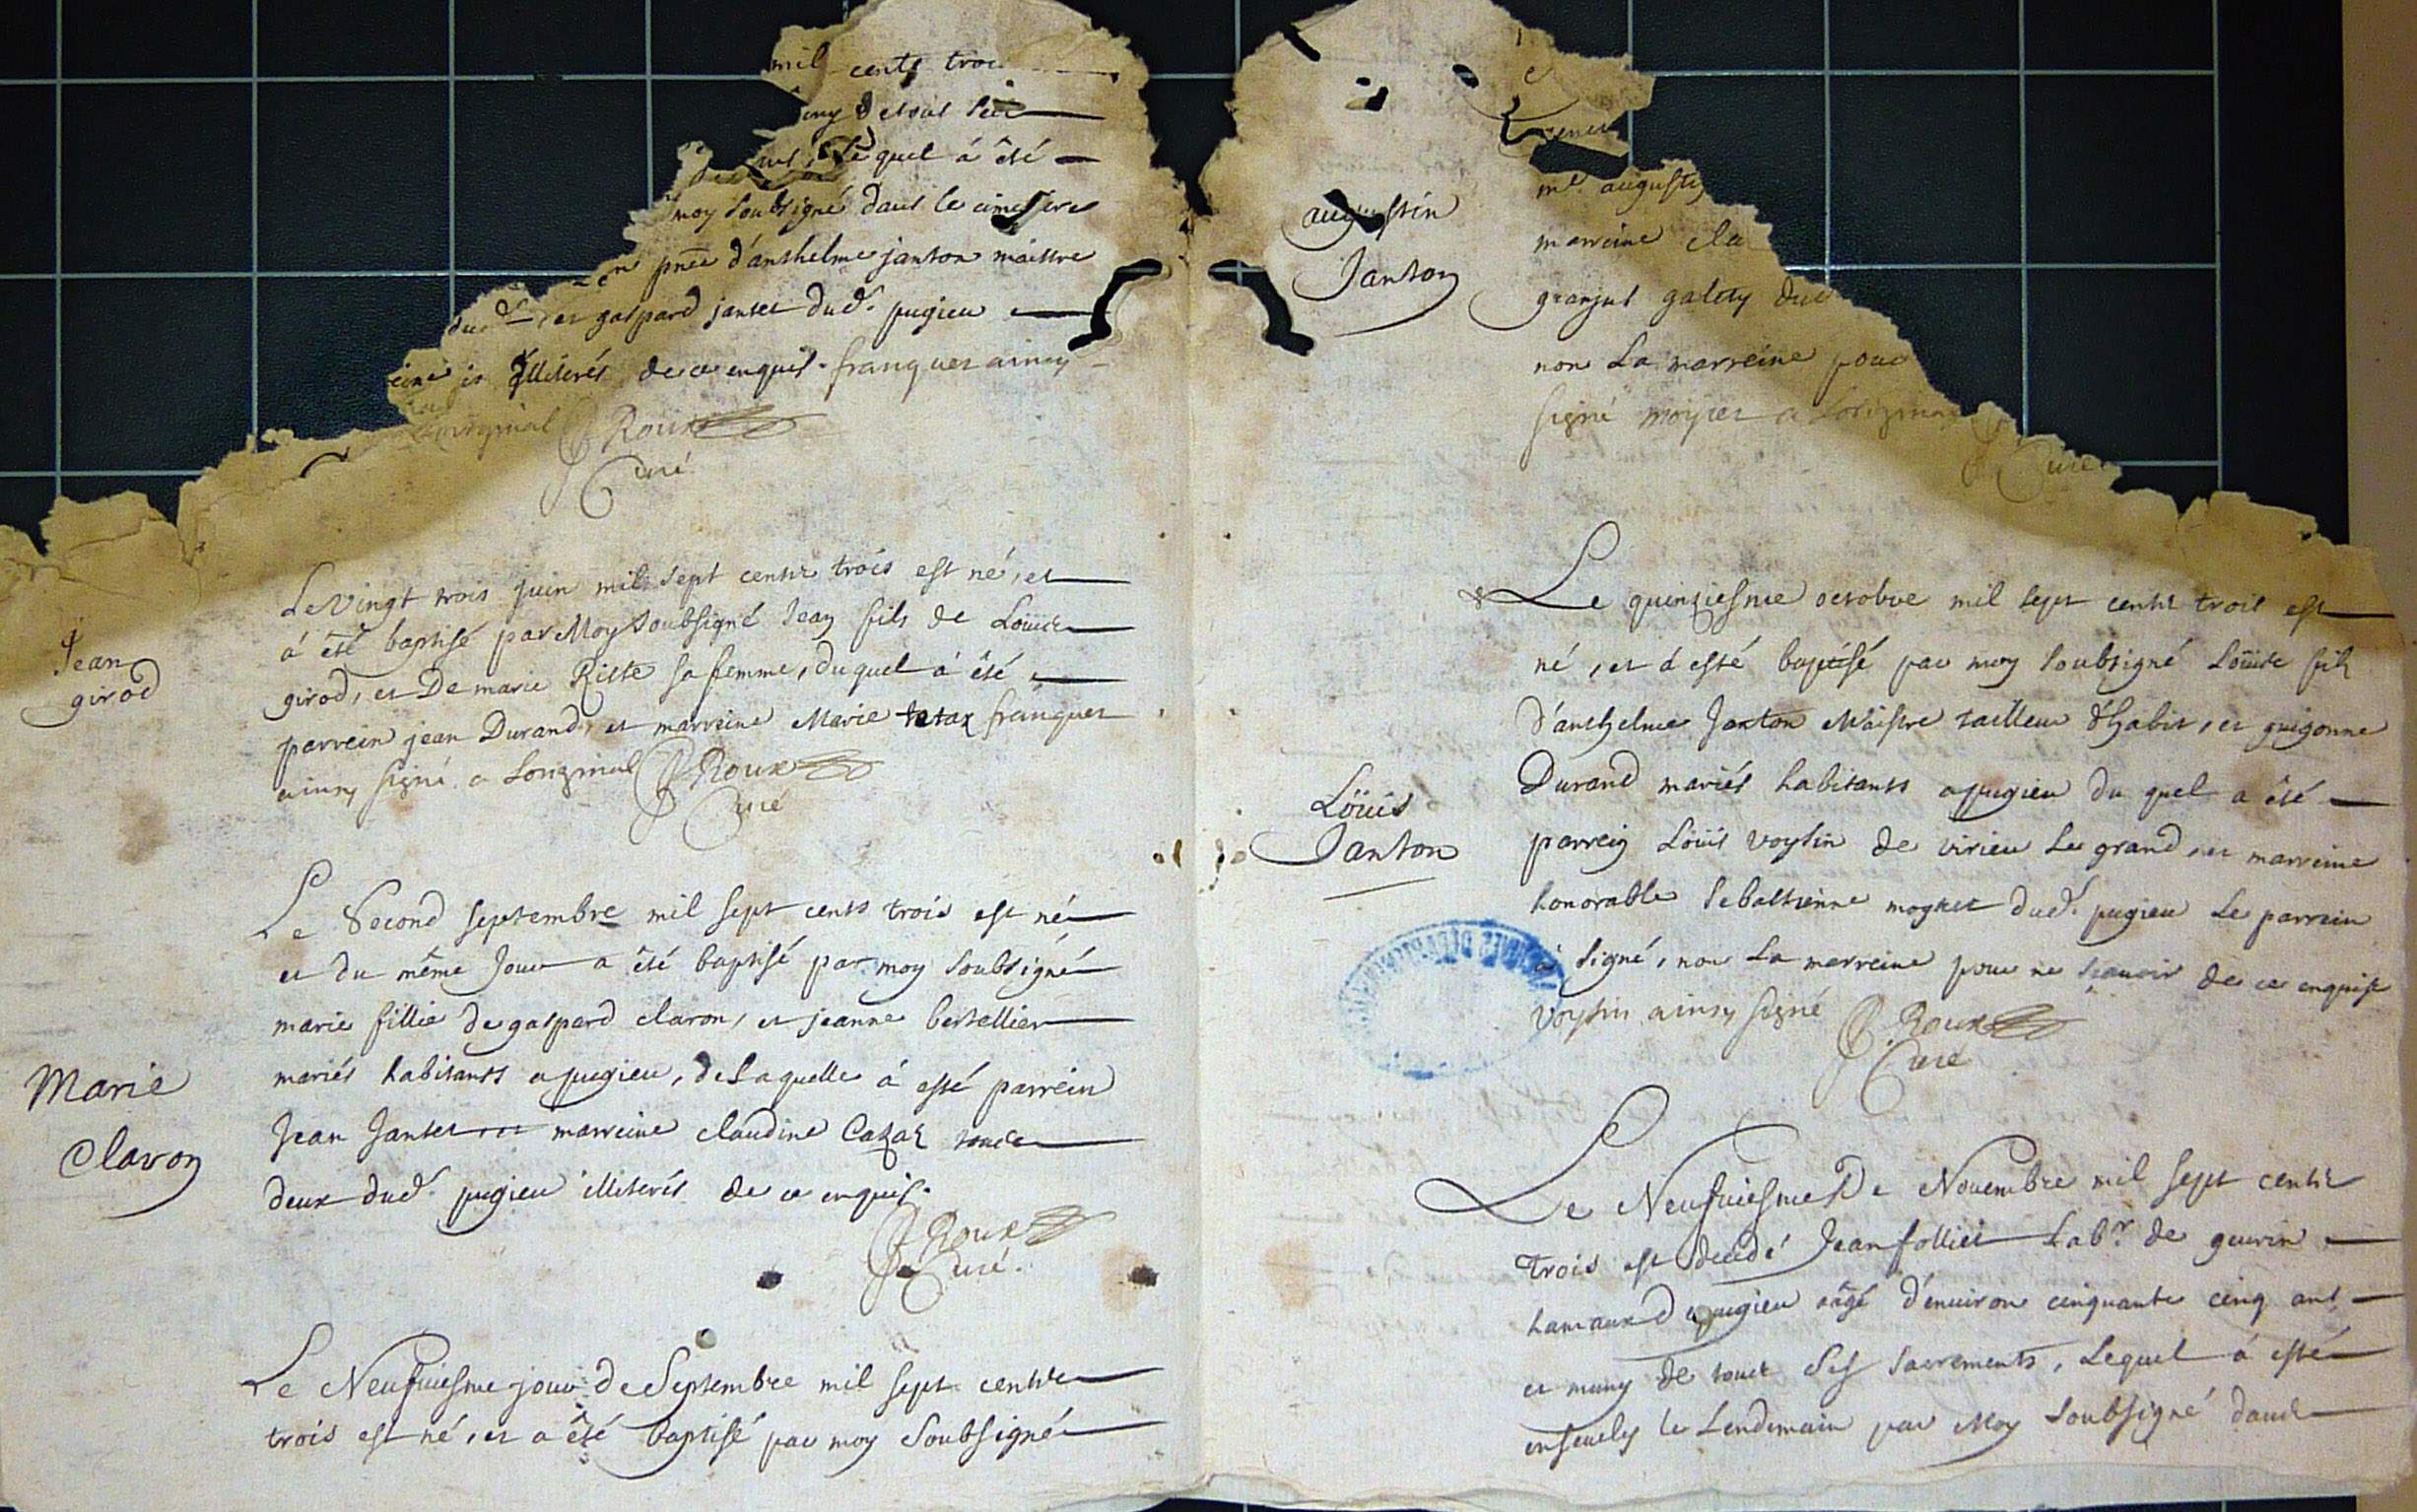 mil cents troi
uny de tous ses
lequel á êté
moy soubsigné dans le cimestere
en pnce d'anthelme janton maistre
dud. et gaspard jantet dud. pugieu
illiterés de ce enquis. franquet ainsy
Loriginal Roux
Curé
Jean
girod
Le vingt trois juin mil sept cents trois est né, et
á êté baptisé par Moy soubsigné Jean fils de Loüis
girod, et De marie Riste sa femme, duquel á êté
parrein jean Durand, et marreine Marie tetaz franquet
ainsy signé a Loriginal Roux
Curé
Marie
Claron
Le Second septembre mil sept cents trois est né
et du même Jour a êté baptisé par moy soubsigné
marie fillie de gaspard claron, et jeanne bertellier
mariés habitants a pugieu, de Laquelle á esté parrein
Jean Jantet et marreine claudine Cazaz tous
deux dud. pugieu illiterés de ce enquis.
Roux
Curé.
Le Neufuiesme jour de Septembre mil sept cents
trois est né, et a êté baptisé par moy Soubsigné
augustin
Janton
me augusti
marreine cla
granjut gallty dud
non La marreine pour
signé moynet a Loriginal
Curé
Le quinziesme octobre mil sept cents trois est
né, et á esté baptisé par moy soubsigné Loüis fils
d'anthelme Janton Maistre tailleur d'habit, et guigonne
Durand mariés habitants a pugieu du quel a êté
Loüis
Janton
parrein Loüis voysin de virieu Le grand, et marreine
honorable sebastienne moynet dud. pugieu Le parrein
á signé, non La marreine pour ne sçauoir de ce enquise
voysin ainsy signé Roux
Curé
Le Neufuiesme De Nouembre mil sept cents
trois est decedé Jean follliet Labr. de gueurin
hameaux d a pugieu aâgé d'enuiron cinquante cinq ans
et muny de tous Ses sacrements, Lequel á esté
enseuely le Lendemain par Moy soubsigné dans